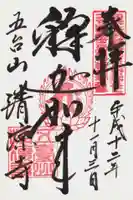 奉拝
平成十二年
十一月三日
釋迦如来
五台山
清凉寺